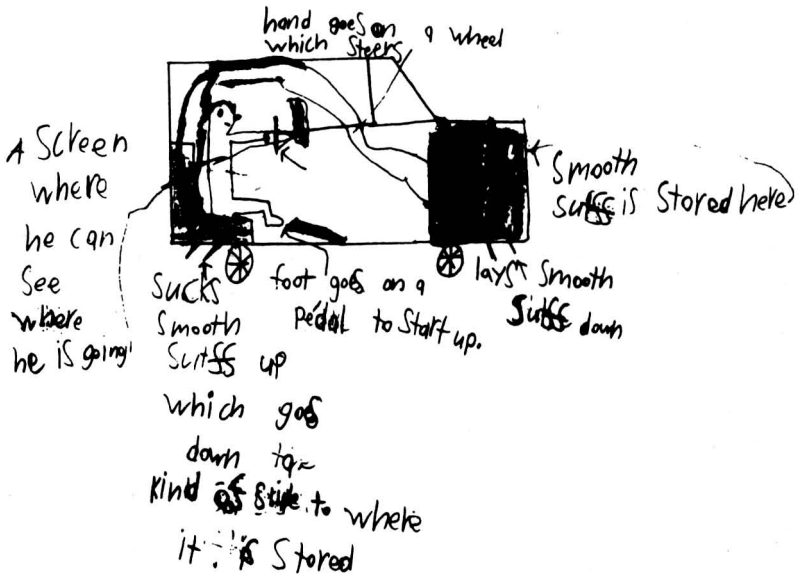 hand goes on a wheel
which steers
A Screen
where
he can
See
where
he is going
Smooth
is Stored here
lays Smooth
down
foot goes on a
Pedal to Start up.
Sucks
Smooth
up
which goes
down
kind to where
it is Stored